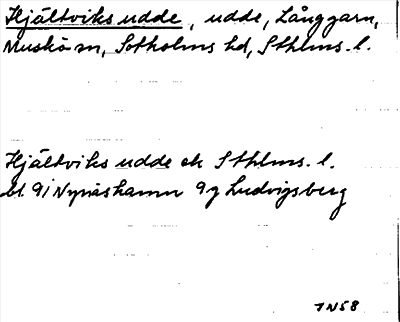 Hjältviks udde, udde, Långgarn,
Muskö sn, Sotholms hd, Sthlms. l.
Hjältviks udde ek Sthlms. l.
bl. 9i Nynäshamn 9g Ludvigsberg
JN58